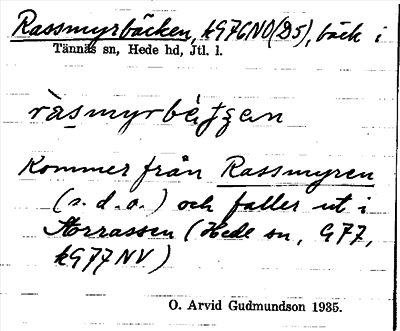 Rassmyrbäcken, kG76NO(D5), bäck i
Tännäs sn, Hede hd, Jtl. l.
Kommer från Rassmyren
(s.d.o.) och faller ut i
Storrassen (Hede sn, G77,
kG77NV)
O. Arvid Gudmundson 1935.